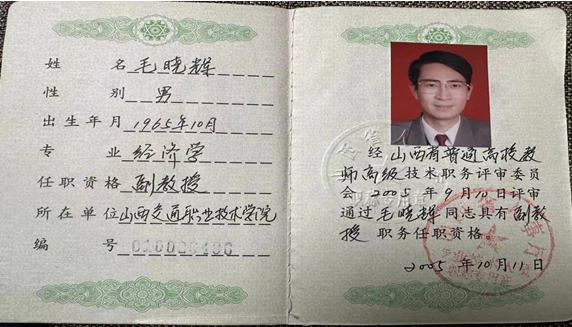 姓名 毛晓辉
性别 男
出生年月 1965年10月
专业 经济学
任职资格 副教授
所在单位 山西交通职业技术学院
编号
经山西省普通高校教
师高级技术职务评审委员
会2005年9月10日评审
通过毛晓辉同志具有副教
授职务任职资格
2005年10月11日